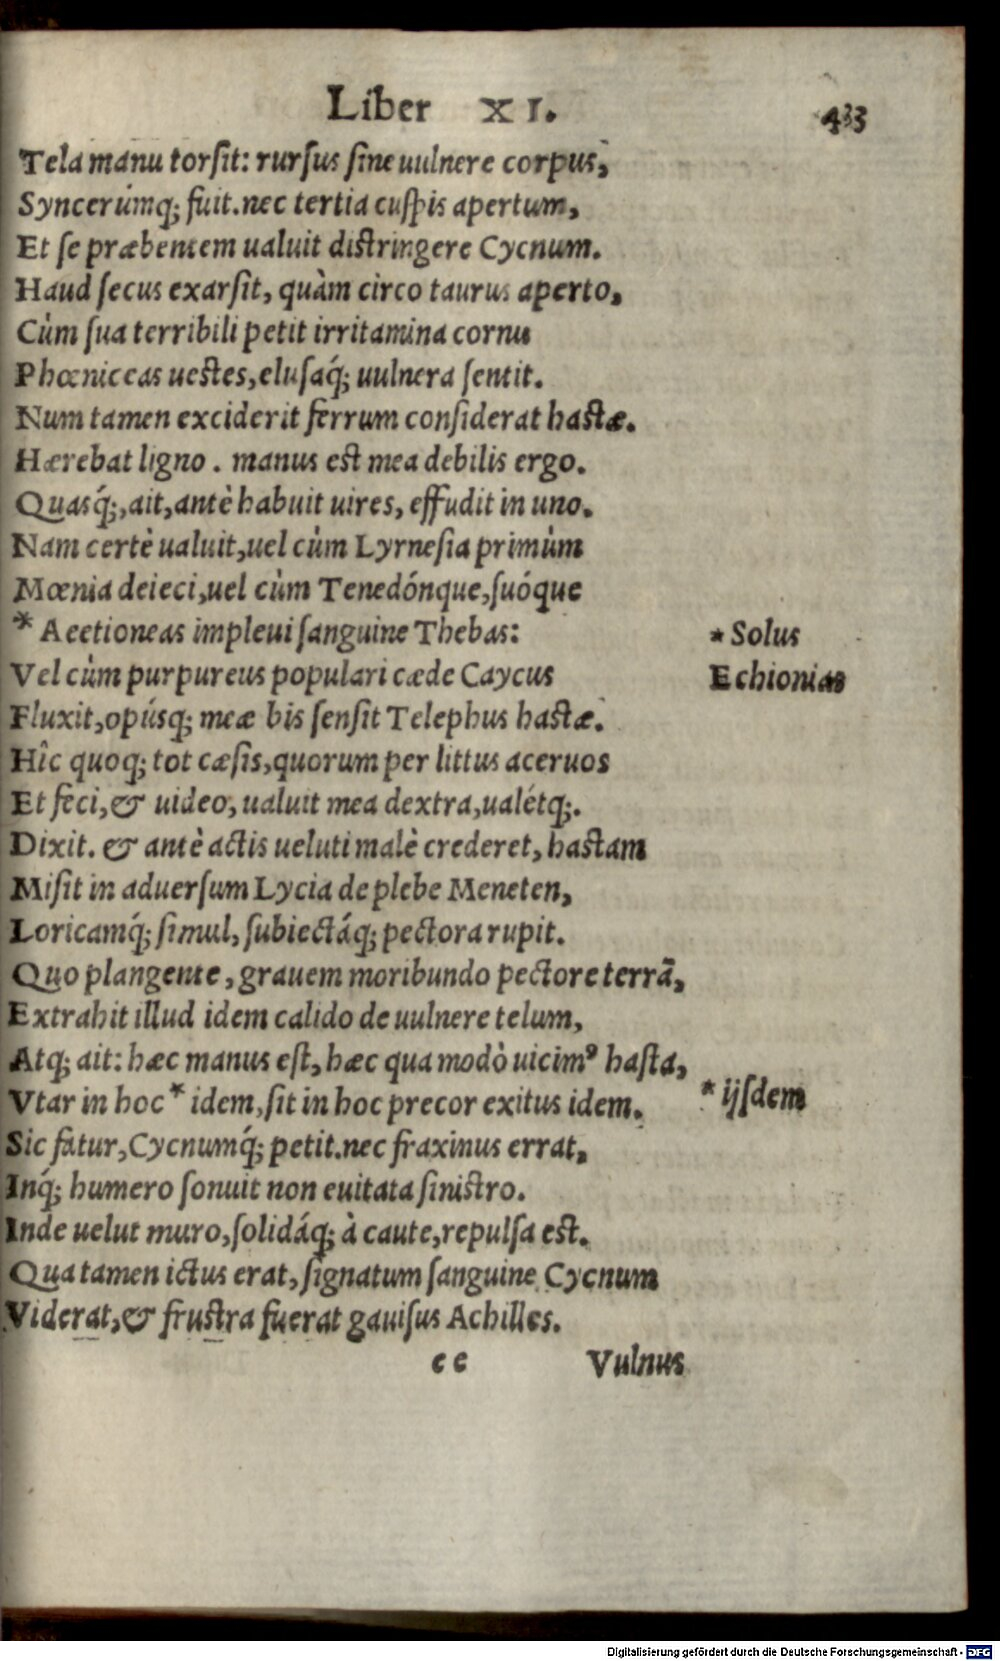 Liber XI. 433
Tela manu torsit: rursus sine uulnere corpus,
Syncerúmq; fuit. nec tertia cuspis apertum,
Et se præbentem ualuit distringere Cycnum.
Haud secus exarsit, quàm circo taurus aperto,
Cùm sua terribili petit irritamina cornu
Phœniceas uestes, elusaq́; uulnera sentit.
Num tamen exciderit ferrum considerat hastæ.
Hærebat ligno. manus est mea debilis ergo.
Quasq́;, ait, antè habuit uires, effudit in uno.
Nam certè ualuit, uel cùm Lyrnesia primùm
Mœnia deieci, uel cùm Tenedónque, suóque
* Aeetioneas impleui sanguine Thebas: * Solus
Vel cùm purpureus populari cæde Caycus Echionias
Fluxit, opúsq; meæ bis sensit Telephus hastæ.
Hîc quoq; tot cæsis, quorum per littus aceruos
Et feci, & uideo, ualuit mea dextra, ualétq;.
Dixit. & antè actis ueluti malè crederet, hastam
Misit in aduersum Lycia de plebe Meneten,
Loricamq́; simul, subiectáq; pectora rupit.
Quo plangente, grauem moribundo pectore terrã,
Extrahit illud idem calido de uulnere telum,
Atq; ait: hæc manus est, hæc qua modò uicimꝰ hasta,
Vtar in hoc * idem, sit in hoc precor exitus idem. * ijsdem
Sic fatur, Cycnumq́; petit. nec fraxinus errat,
Inq́; humero sonuit non euitata sinistro.
Inde uelut muro, solidáq; à caute, repulsa est.
Qua tamen ictus erat, signatum sanguine Cycnum
Viderat, & frustra fuerat gauisus Achilles.
ee Vulnus
Digitalisierung gefördert durch die Deutsche Forschungsgemeinschaft - DFG